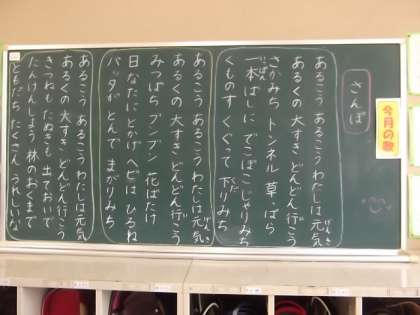 今月の歌
さんぽ
あるこう あるこう わたしは元気
あるくの 大すき どんどん行こう
さかみち トンネル 草っぱら
一本ばしに でこぼこじゃりみち
くものす くぐって 下りみち
あるこう あるこう わたしは元気
あるくの 大すき どんどん行こう
みつばち ブンブン 花ばたけ
日なたにとかげ ヘビはひるね
バッタが とんで まがりみち
あるこう あるこう わたしは元気
あるくの 大すき どんどん行こう
きつねも たぬきも 出ておいで
たんけんしよう 林のおくまで
ともだち たくさん うれしいな